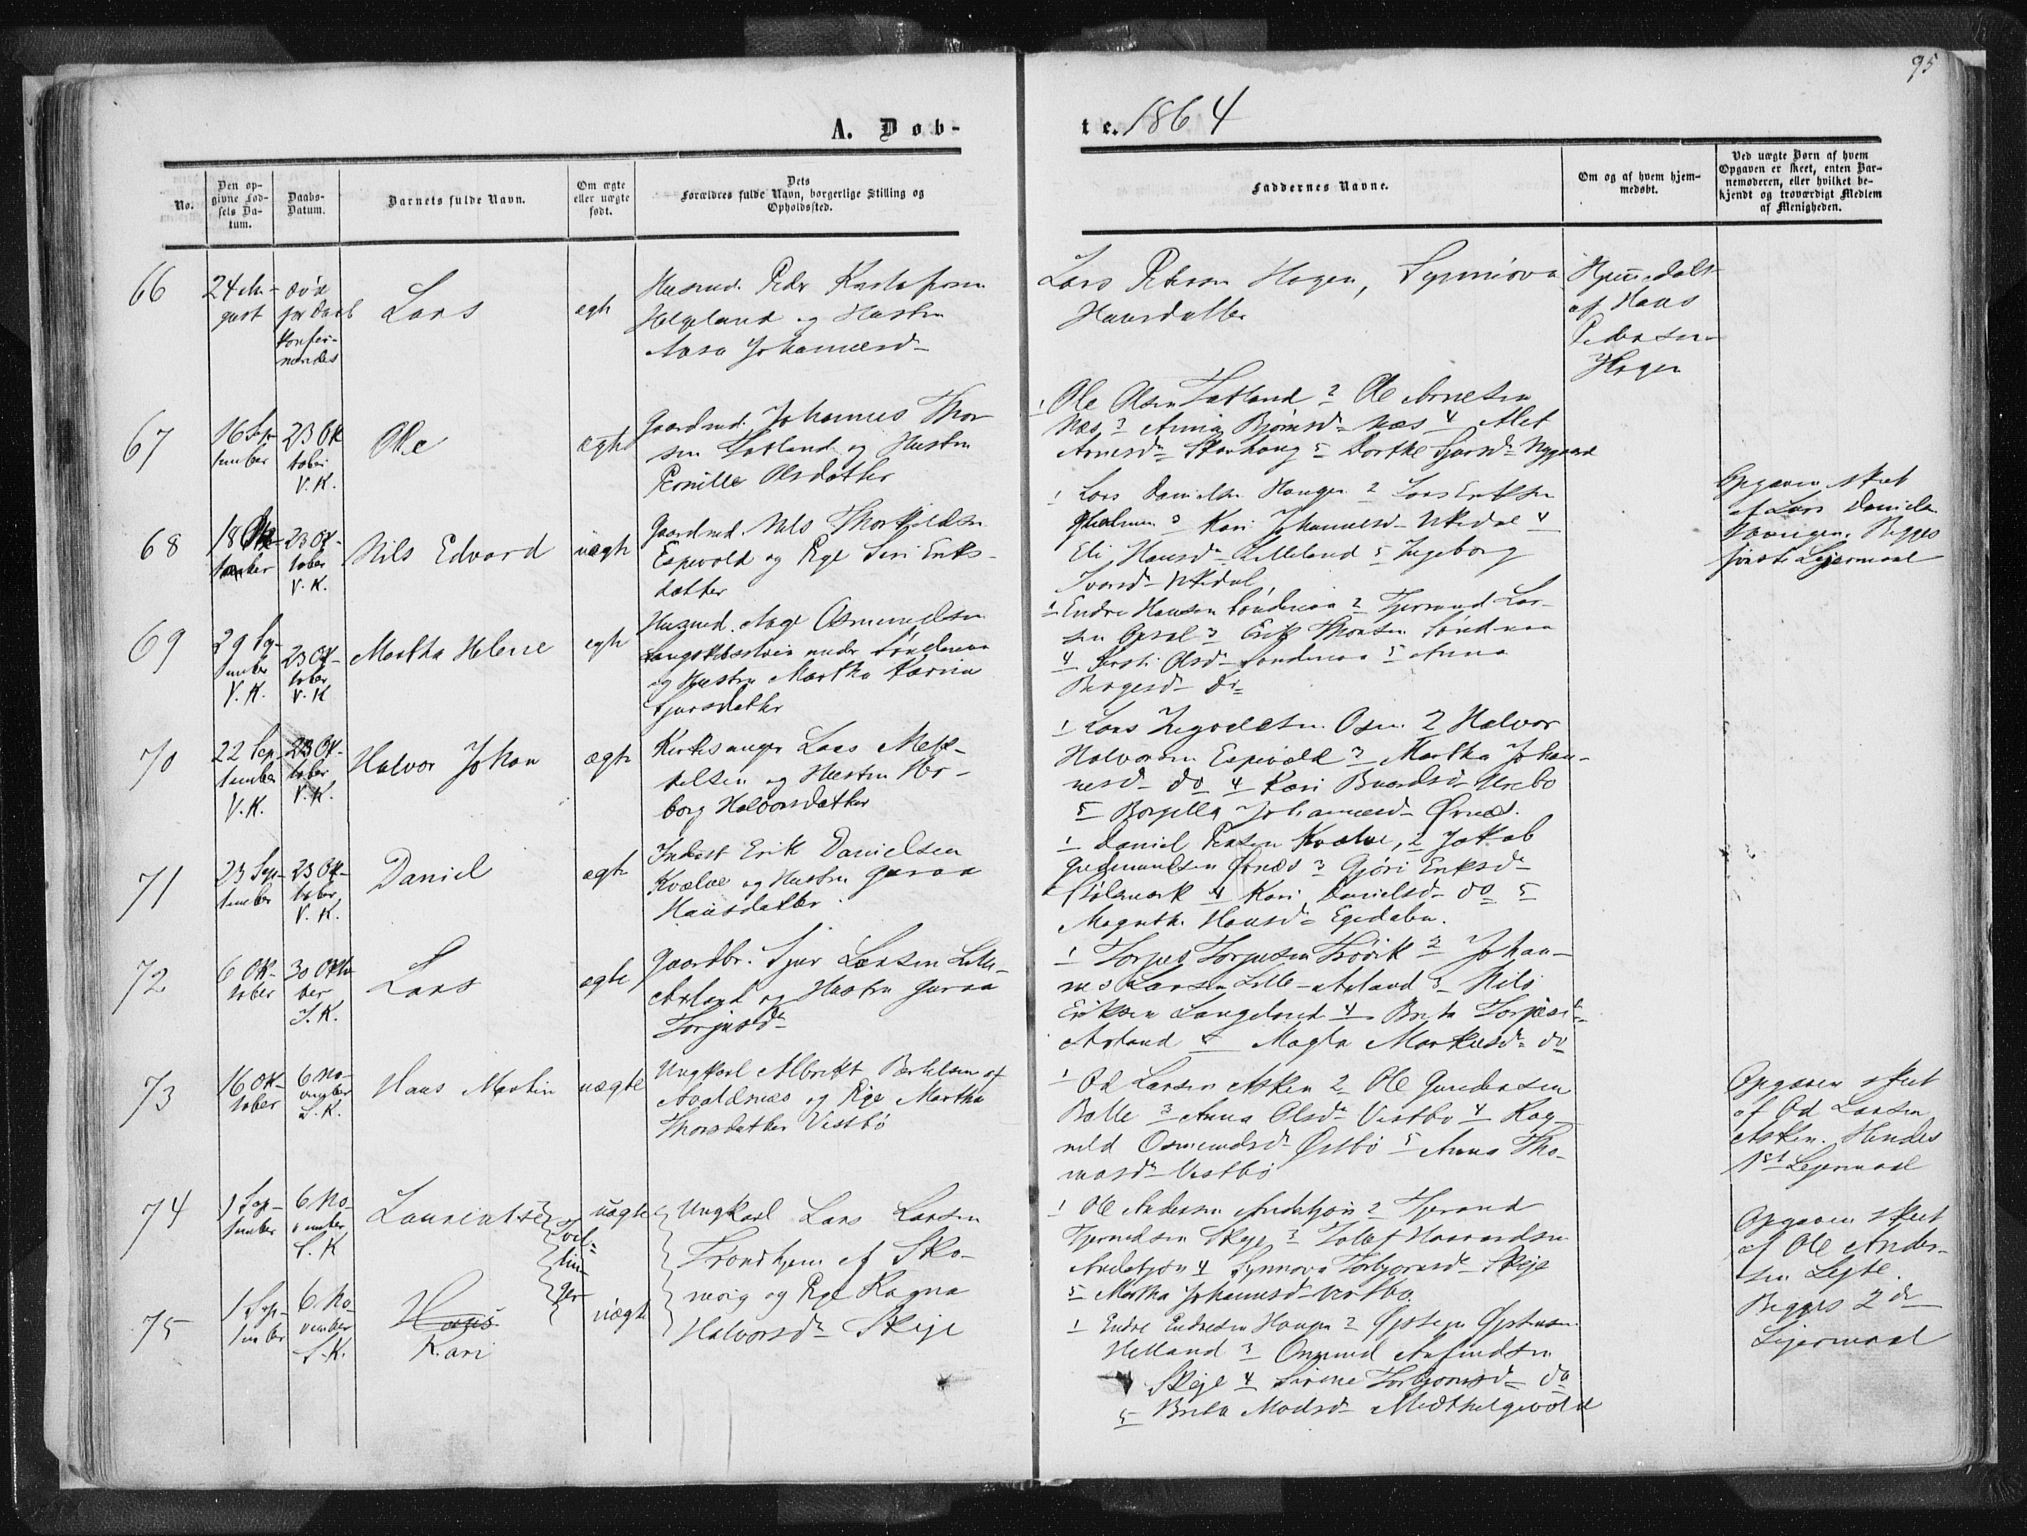 95
A. Døb-
te. 1864
No.
Den op-
givne Fød-
sels Da-
tum.
Daabs-
Datum.
Barnets fulde Navn.
Om ægte
eller uægte
født.
Dets
Forældres fulde Navn, borgerlige Stilling og
Opholdssted.
Faddernes Navne.
Om og af hvem hjem-
medøbt.
Ved uægte Børn af hvem
Opgaven er skeet, enten Bar-
nemoderen, eller hvilket be-
kjendt og troværdigt Medlem
af Menigheden.
66
24 Au-
gust
død
før Daab
Konfir-
Lars
egte
Husmd. Peder
Helgeland og Hustru
Aasa Johannesd
Lars Petersen Hagen, Synnøva
Hansdatter
Hjemedøbt
af Hans
Pedersen
Hagen
67
16 Sep-
tember
23 Ok
tober
V. K.
Ole
ægte
Gaardmd. Johannes Thor
sen Søtland og Hustru
Pernille Olsdatter
1 Ole Olsen 2 Ole Arnesen
Næs 3 Anna Bjørnsd Næs 4 Alet
Arnesd 5 Dorthe Sjursd Nygaard
68
18
23 Ok-
tober
V. K.
Nils Edvard
uægte
Gaardmd. Nils Thorkildsen
Espevold og Pige Siri Eriks-
datter
1 Lars Danielsen Haugen 2 Lars Eriksen
3 Kari Johannesd 4
Eli Hansd Lilleland 5 Ingeborg
Ivarsd
Opgaven skeet
af Lars Danielsen
Haugen. Begges
første Lejermaal
69
29 Sep-
tember
V. K.
23 Ok-
tober
V. K
Martha Helene
egte
Husmd. Aage Osmundsen
under Søndenaa
og Hustru Martha Karina
Sjursdatter
1 Endre Hansen Søndenaa 2 Tjerand Lar-
sen Opsal 3 Erik Thorsen Søndenaa
4 Kersti Olsd Søndenaa 5 Anna
Børgesd Do
70
22 Sep-
tember
V. K.
23 Ok-
tober
V. K.
Halvor Johan
ægte
Kirkesanger Lars Met-
telsen og Hustru Her-
borg Halvorsdatter
1 Lars Ingvaldsen Osen 2 Halvor
Halvorsen Espevold 3 Martha Johan-
nesd do 4 Kari Baardsd Urebø
5 Borgilla Johannesd Ørnes.
71
23 Sep-
tember
23 Ok-
tober
V. K.
Daniel
egte
Inderst Erik Danielsen
Kvælve og Hustru Guroa
Hansdatter
1 Daniel Pedersen Kvælve, 2 Jakob
Gudmundsen Ørnes 3 Gjøri Eriksd
Stølsmark 4 Kari Danielsd do 5
Magnthe Hansd Egedalen.
72
6 Ok-
tober
30 Okto
ber
J. K.
Lars
egte
Gaardbr. Sjur Larsen Lille-
Axland og Hustru Guroa
Torjusd
1 Torjus Torjusen 2 Johan-
nes Larsen Lille-Axland 3 Nils
Eriksen Langeland 4 Brita Torjusd
Axland 5 Magla Markusd do
73
16 Ok-
tober
6 No-
vember
S. K.
Hans Martin
uægte
Ungkarl Albrikt Bertelsen af
Avaldsnæs og Pige Martha
Thorsdatter Vestbø
1 Od Larsen Asken 2 Ole Gundersen
Bolle 3 Anna Olsd Vestbø 4 Rag-
nild Osmundsd Østbø 5 Anna Tho-
masd Vestbø
Opgaven skeet
af Od Larsen
Asken. Hendes
1st Lejermaal
74
1 Sep-
tember
6 No-
vember
S. K
Lauriatse
Tvil-
lin-
ger
uægte
Ungkarl Lars Larsen
Trondhjem af Sko-
nevig og Pige Ragna
Halvorsd Skeje
1 Ole Andersen 2 Tjerand
Tjerandsen Skeje 3 Tollef Haavardsen
4 Synnøva Torbjørnsd Skeje
5 Martha Johannesd Vestbø
Opgaven skeet
af Ole Ander-
sen Lejte.
Begges 2d
Lejermaal
75
1 Sep-
tember
6 No-
vember
S. K.
Hans
Kari
uægte
1 Endre Endresen Haugen 2 Øystein Øystensen
Helland 3 Omund Anfindsen
Skeje 4 Sirene Torbjørnsd do
5 Brita Madsd Midthelgevold